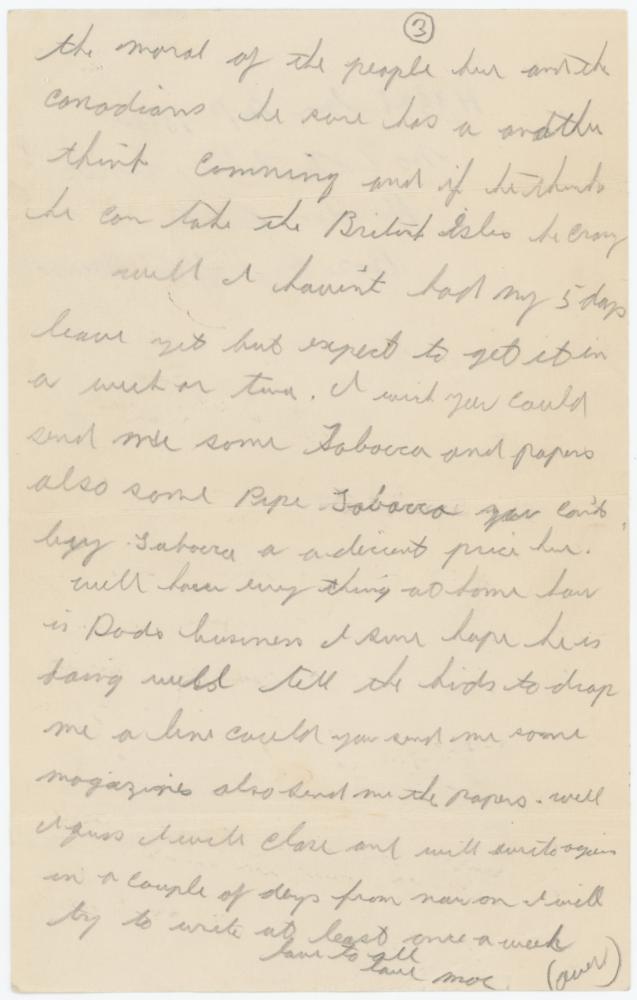 3
the moral of the people her and the
Canadians he sure has a another
think comming and if he thinks
he can take the British Isles he crazy
well I havin't had my 5 days
leave yet but expect to get it in
a week or two. I wish you could
send me some Tobacco and papers
also some Pipe Tobacco you can't
buy Tobacco a a decient price her.
well how every thing at home how
is Dads business I sure hope he is
doing well tell the kids to drop
me a line could you send me some
magazines also send me the papers. well
I guss I will close and will write again
in a couple of days from now on I will
try to write at least once a week
love to all
love moe
(over)